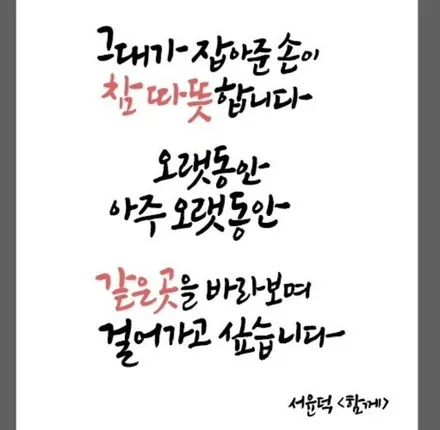 그대가 잡아준 손이
참 따뜻합니다
오랫동안
아주 오랫동안
같은곳을 바라보며
걸어가고 싶습니다
서윤덕 <함께>